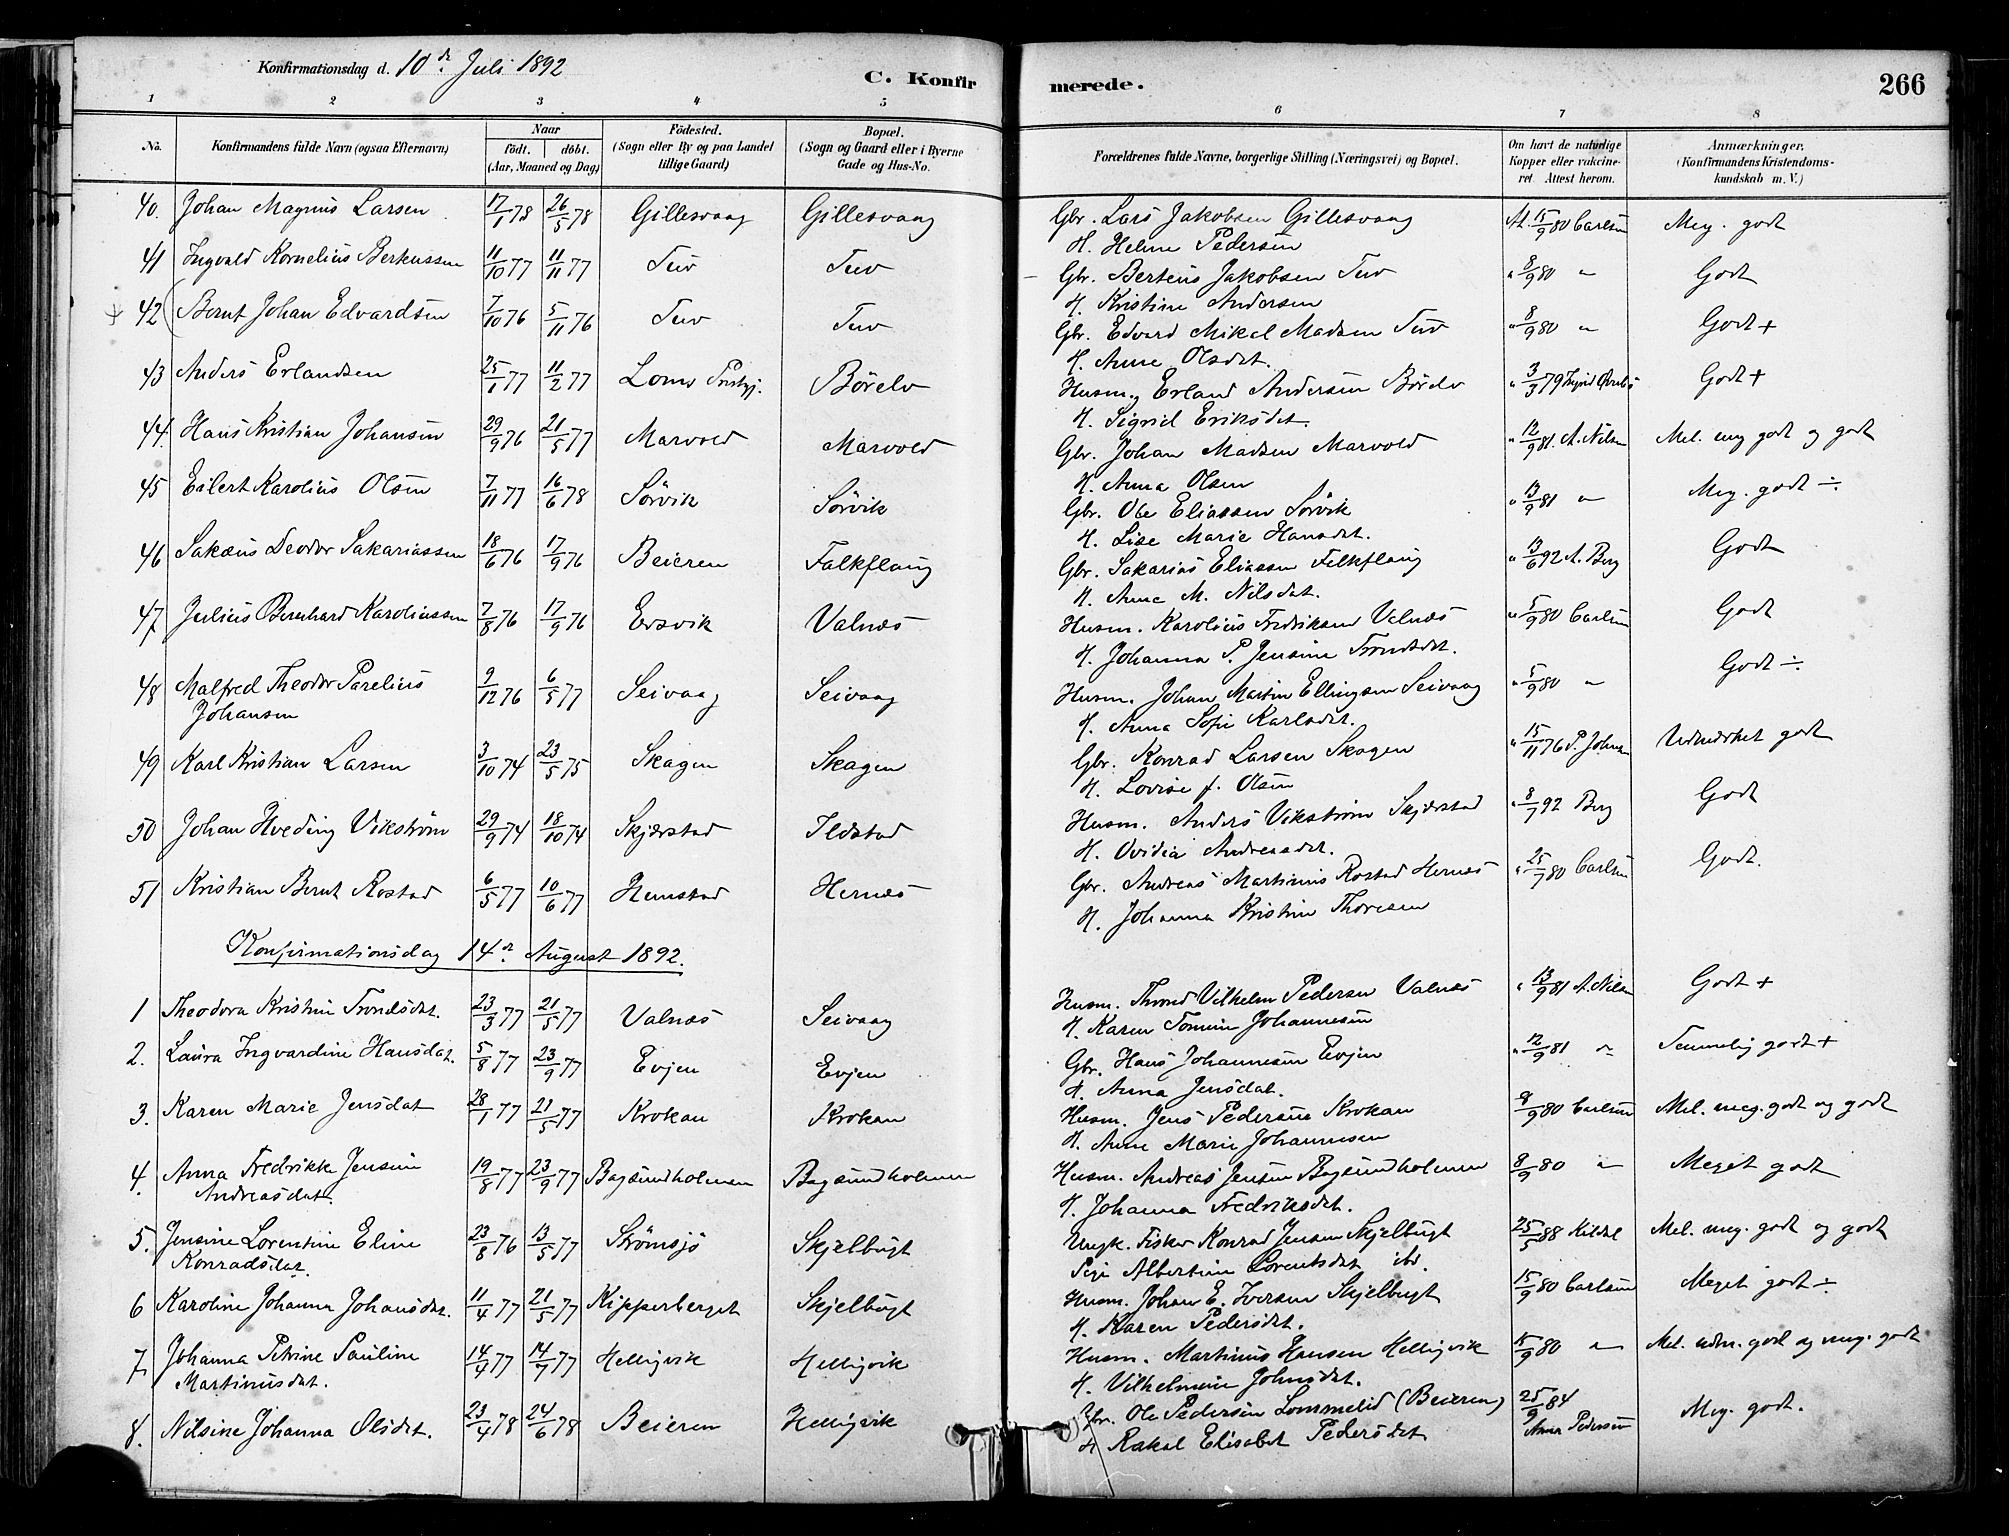 Konfirmationsdag d. 10de Juli 1892
C. Konfirmerede.
266
1 2 3 4 5 6 7 8
No. Konfirmandens fulde Navn (ogsaa Efternavn) Naar födt. döbt. (Aar, Maaned og Dag) Födested. (Sogn eller By og paa Landet tillige Gaard) Bopæl. (Sogn og Gaard eller i Byerne Gade og Hus-No. Forældrenes fulde Navne, borgerlige Stilling (Næringsvei) og Bopæl. Om havt de naturlige Kopper eller vakcineret. Attest herom. Anmærkninger. (Konfirmandens Kristendomskundskab m. V.)
40. Johan Magnus Larsen 17/1 78 26/5 78 Gillesvaag Gillesvaag Gbr. Lars Jakobsen Gillesvaag At. 15/9 80 Carlsen Meg. godt
H. Heline Pedersen
41 Ingvald Kornelius Berteussen 11/10 77 11/11 77 Tuv Tuv Gbr. Berteus Jakobsen Tuv " 8/9 80 " Godt
H. Kristine Andersen
42 Bernt Johan Edvardsen 7/10 76 5/11 76 Tuv Tuv Gbr. Edvard Mikal Madsen Tuv " 8/9 80 " Godt +
H. Anne Olsdat.
43 Anders Erlandsen 25/1 77 11/2 77 Loms Prstgj. Børelv Husm. Erland Andersen Børelv " 3/3 79 Godt +
H. Sigrid Eriksdat.
44. Hans Kristian Johansen 29/9 76 21/5 77 Marvold Marvold Gbr. Johan Madsen Marvold " 12/9 81 A. Nilsen Mel. meg godt og godt
H. Anna Olsen
45 Eilert Karolius Olsen 7/11 77 16/6 78 Sörvik Sörvik Gbr. Ole Eliassen Sörvik " 13/9 81 " Meg. godt ÷
H. Lise Marie Hansdat.
46 Sakæus Teodor Sakariassen 18/6 76 17/9 76 Beieren Falkflaug Gbr. Sakarias Eliassen Felkflaug " 13/6 92 A. Berg Godt
H. Anne M. Nilsdat.
47 Julius Bernhard Karoliussen 7/8 76 17/9 76 Ersvik Valnæs Husm. Karolius Fredriksen Valnæs " 5/9 80 Carlsen Godt
H. Johanna P. Jensine Trondsdat.
48 Malfred Theodor Parelius 9/12 76 6/5 77 Seivaag Seivaag Husm. Johan Martin Ellingsen Seivaag " 5/9 80 " Godt ÷
Johansen H. Anna Sofie Karlsdat.
49 Karl Kristian Larsen 3/10 74 23/5 75 Skagen Skagen Gbr. Konrad Larsen Skagen " 15/11 76 P. Johnsen Udmærket godt
H. Lovise f. Olsen
50 Johan Hveding Vikström 29/9 74 18/10 74 Skjærstad Ildstad Husm. Anders Vikström Skjærstad " 8/7 92 Berg Godt
H. Ovidia Andreasdat.
51 Kristian Bernt Rostad 6/5 77 10/6 77 Hernstad Hernæs Gbr. Andreas Martinius Rostad Hernæs " 25/7 80 Carlsen Godt.
H. Johanna Kristine Thoresen
Konfirmationsdag 14de August 1892.
1 Theodora Kristine Trondsdat. 23/3 77 21/5 77 Valnæs Seivaag Husm. Thrond Vilhelm Pedersen Valnæs " 13/9 81 A. Nilsen Godt +
H. Karen Tomine Johannesen
2. Laura Ingvardine Hansdat. 5/8 77 23/9 77 Evjen Evjen Gbr. Hans Johannesen Evjen " 12/9 81 " Temmelig godt +
H. Anna Jensdat.
3. Karen Marie Jensdat 28/1 77 21/5 77 Krokan Krokan Husm. Jens Pedersen Krokan 8/9 80 Carlsen Mel. meg. godt og godt
H. Anne Marie Johannesen
4. Anna Fredrikke Jensine 19/8 77 23/9 77 Bogsundholmen Bogsundholmen Husm. Andreas Jensen Bogsundholmen 8/9 80 " Meget godt
Andreasdat. H. Johanna Fredriksdat.
5. Jensine Lorentine Eline 23/8 76 13/5 77 Strömsjö Skjelbugt Ungk. Fisker Konrad Jensen Skjelbugt 25/5 88 Kildal Mel. meg. godt og godt
Konradsdat. Pige Albertine Lorentsdat ibd.
6 Karoline Johanna Johansdat. 11/4 77 21/5 77 Kipperberget Skjelbugt Husm. Johan E. Iversen Skjelbugt 15/9 80 Carlsen Meget godt ÷
H. Karen Pedersdat.
7 Johanna Petrine Pauline 14/4 77 14/7 77 Helligvik Helligvik Husm. Martinus Hansen Helligvik 15/9 80 " Mel. udm. godt og meg. godt
Martinusdat. H. Vilhelmine Johnsdat.
8. Nilsine Johanna Olsdat. 23/4 78 24/6 78 Beieren Helligvik Gbr. Ole Pedersen Lommelid (Beieren) 25/9 84 Anna Pedersen Meg. godt.
H Rakel Elisabet Pedersdat